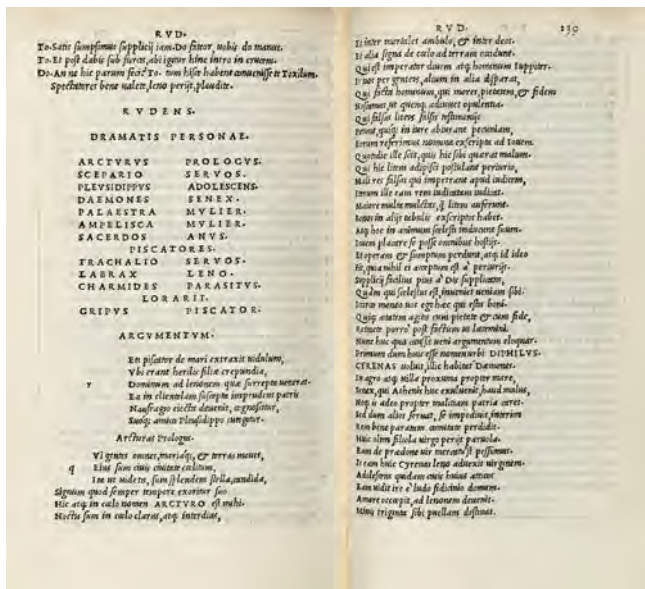 RVD.
To. Satis sumpsimus supplicij iam. Do fateor, uobis do manus.
To. Et post dabis sub furcis, abi igitur hinc intro in crucem.
Do. An ne hic parum feci? To. tum hise habent conuenisse te Toxilum.
Spectatores bene ualete, leno perijt, plaudite.
RVDENS.
DRAMATIS PERSONAE.
ARCTVRVS PROLOGVS.
SCEPARIO SERVOS.
PLEVSIDIPPVS ADOLESCENS.
DAEMONES SENEX.
PALAESTRA MVLIER.
AMPELISCA MVLIER.
SACERDOS ANVS.
PISCATORES.
TRACHALIO SERVOS.
LABRAX LENO.
CHARMIDES PARASITVS.
LORARII.
GRIPVS PISCATOR.
ARGVMENTVM.
En piscator de mari extraxit uidulum,
Vbi erant herilis filiæ crepundia,
Dominum ad lenonem quæ surrepta uenerat.
Ea in clientelam suscepta imprudens patris
Naufragio eiecta deuenit, cognoscitur,
Suoq; amico Pleusidippo iungitur.
Arcturus Prologus.
Vi gentes omnes, mariaq;, & terras mouet,
q Eius sum ciuis ciuitate cœlitum,
Ita ut uidetis, sum splendens stella candida,
Signum quod semper tempore exoritur suo
Hic atq; in cœlo nomen ARCTVRO est mihi.
Noctu sum in cœlo clarus, atq; interdius,
RVD. 239
Et inter mortales ambulo, & inter deos.
Et alia signa de cœlo ad terram accidunt.
Qui est imperator diuum atq; hominum Iuppiter.
Is nos per gentes, alium in alia disparat,
Qui facta hominum, qui mores, pietatem, & fidem
Noscamus, ut quenq; adiuuet opulentia.
Qui falsas litens falsis testimonijs
Petunt, quiq; in iure abiurant pecuniam,
Eorum referimus nomina exscripta ad Iouem.
Quotidie ille scit, quis hic sibi quærat malum.
Qui hic litem adipisci postulant periurio,
Mali res falsas qui impetrant apud iudicem,
Iterum ille eam rem iudicatam iudicat.
Maiore multa mulctat, q̃ litem auferunt.
Bonos in alijs tabulis exscriptos habet.
Atq; hoc in animum scelesti inducunt suum.
Iouem placare se posse omnibus hostijs.
Et operam & sumptum perdunt, atq; id ideo
Fit, quia nihil ei acceptum est à periuris.
Supplicij facilius pius à Dijs supplicans,
Quàm qui scelestus est, inueniet ueniam sibi.
Iccirco moneo uos ego hæc qui estis boni.
Quiq; ætatem agitis cum pietate & cum fide,
Retinete porrò post factum ut lætemini.
Nunc huc qua causa ueni argumentum eloquar.
Primum dum huic esse nomen urbi DIPHILVS.
CYRENAS uoluit, illic habitat Dæmones.
In agro atq; uilla proxima propter mare,
Senex, qui Athenis huc exul uenit, haud malus,
Neq; is adeo propter malitiam patria caret.
Sed dum alios seruat, se impediuit, interim
Rem bene paratam comitate perdidit.
Huic olim filiola uirgo perijt paruola.
Eam de prædone uir mercatu'st pessimus.
Is eam huc Cyrenas leno aduexit uirginem.
Adolescens quidam ciuis huius atticus
Eam uidit ire è ludo fidicinio domum.
Amare occœpit, ad lenonem deuenit.
Minis triginta sibi puellam destinat.